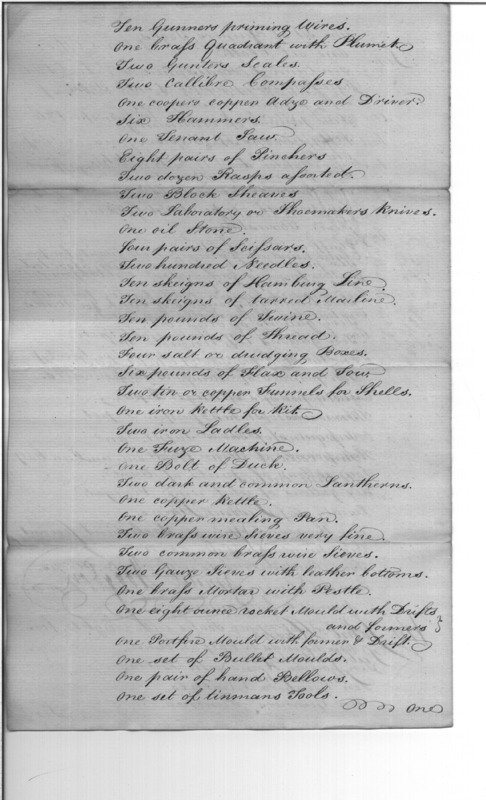 Ten Gunners priming Wires.
One brass Quadrant with Plumet
Two Gunters Scales.
Two Callibre Compasses
One coopers copper Adze and Driver.
Six Hammers.
One Tenant Saw.
Eight pairs of Pinchers
Two dozen Rasps assorted.
Two Block Sheaves
Two Laboratory or Shoemakers Knives.
One oil Stone.
Four pairs of Scissars.
Two hundred Needles.
Ten skeigns of Hamburg Line.
Ten skeigns of tarred Marline.
Ten pounds of Twine.
Ten pounds of Thread.
Four salt or drudging Boxes.
Six pounds of Flax and Tow.
Two tin or copper Funnels for Shells.
One iron Kettle for Kit.
Two iron Ladles.
One Fuze Machine.
One Bolt of Duck.
Two dark and common Lantherns.
One copper Kettle.
One copper mealing Pan.
Two brass wire Sieves very fine.
Two common brass wire Sieves.
Two Gauze Sieves with leather bottoms.
One brass Mortar with Pestle.
One eight ounce rocket Mould with Drifts
and formers }
One Portfire Mould with former & Drift.
One set of Bullet Moulds.
One pair of hand Bellows.
One set of tinmans Tools.
One